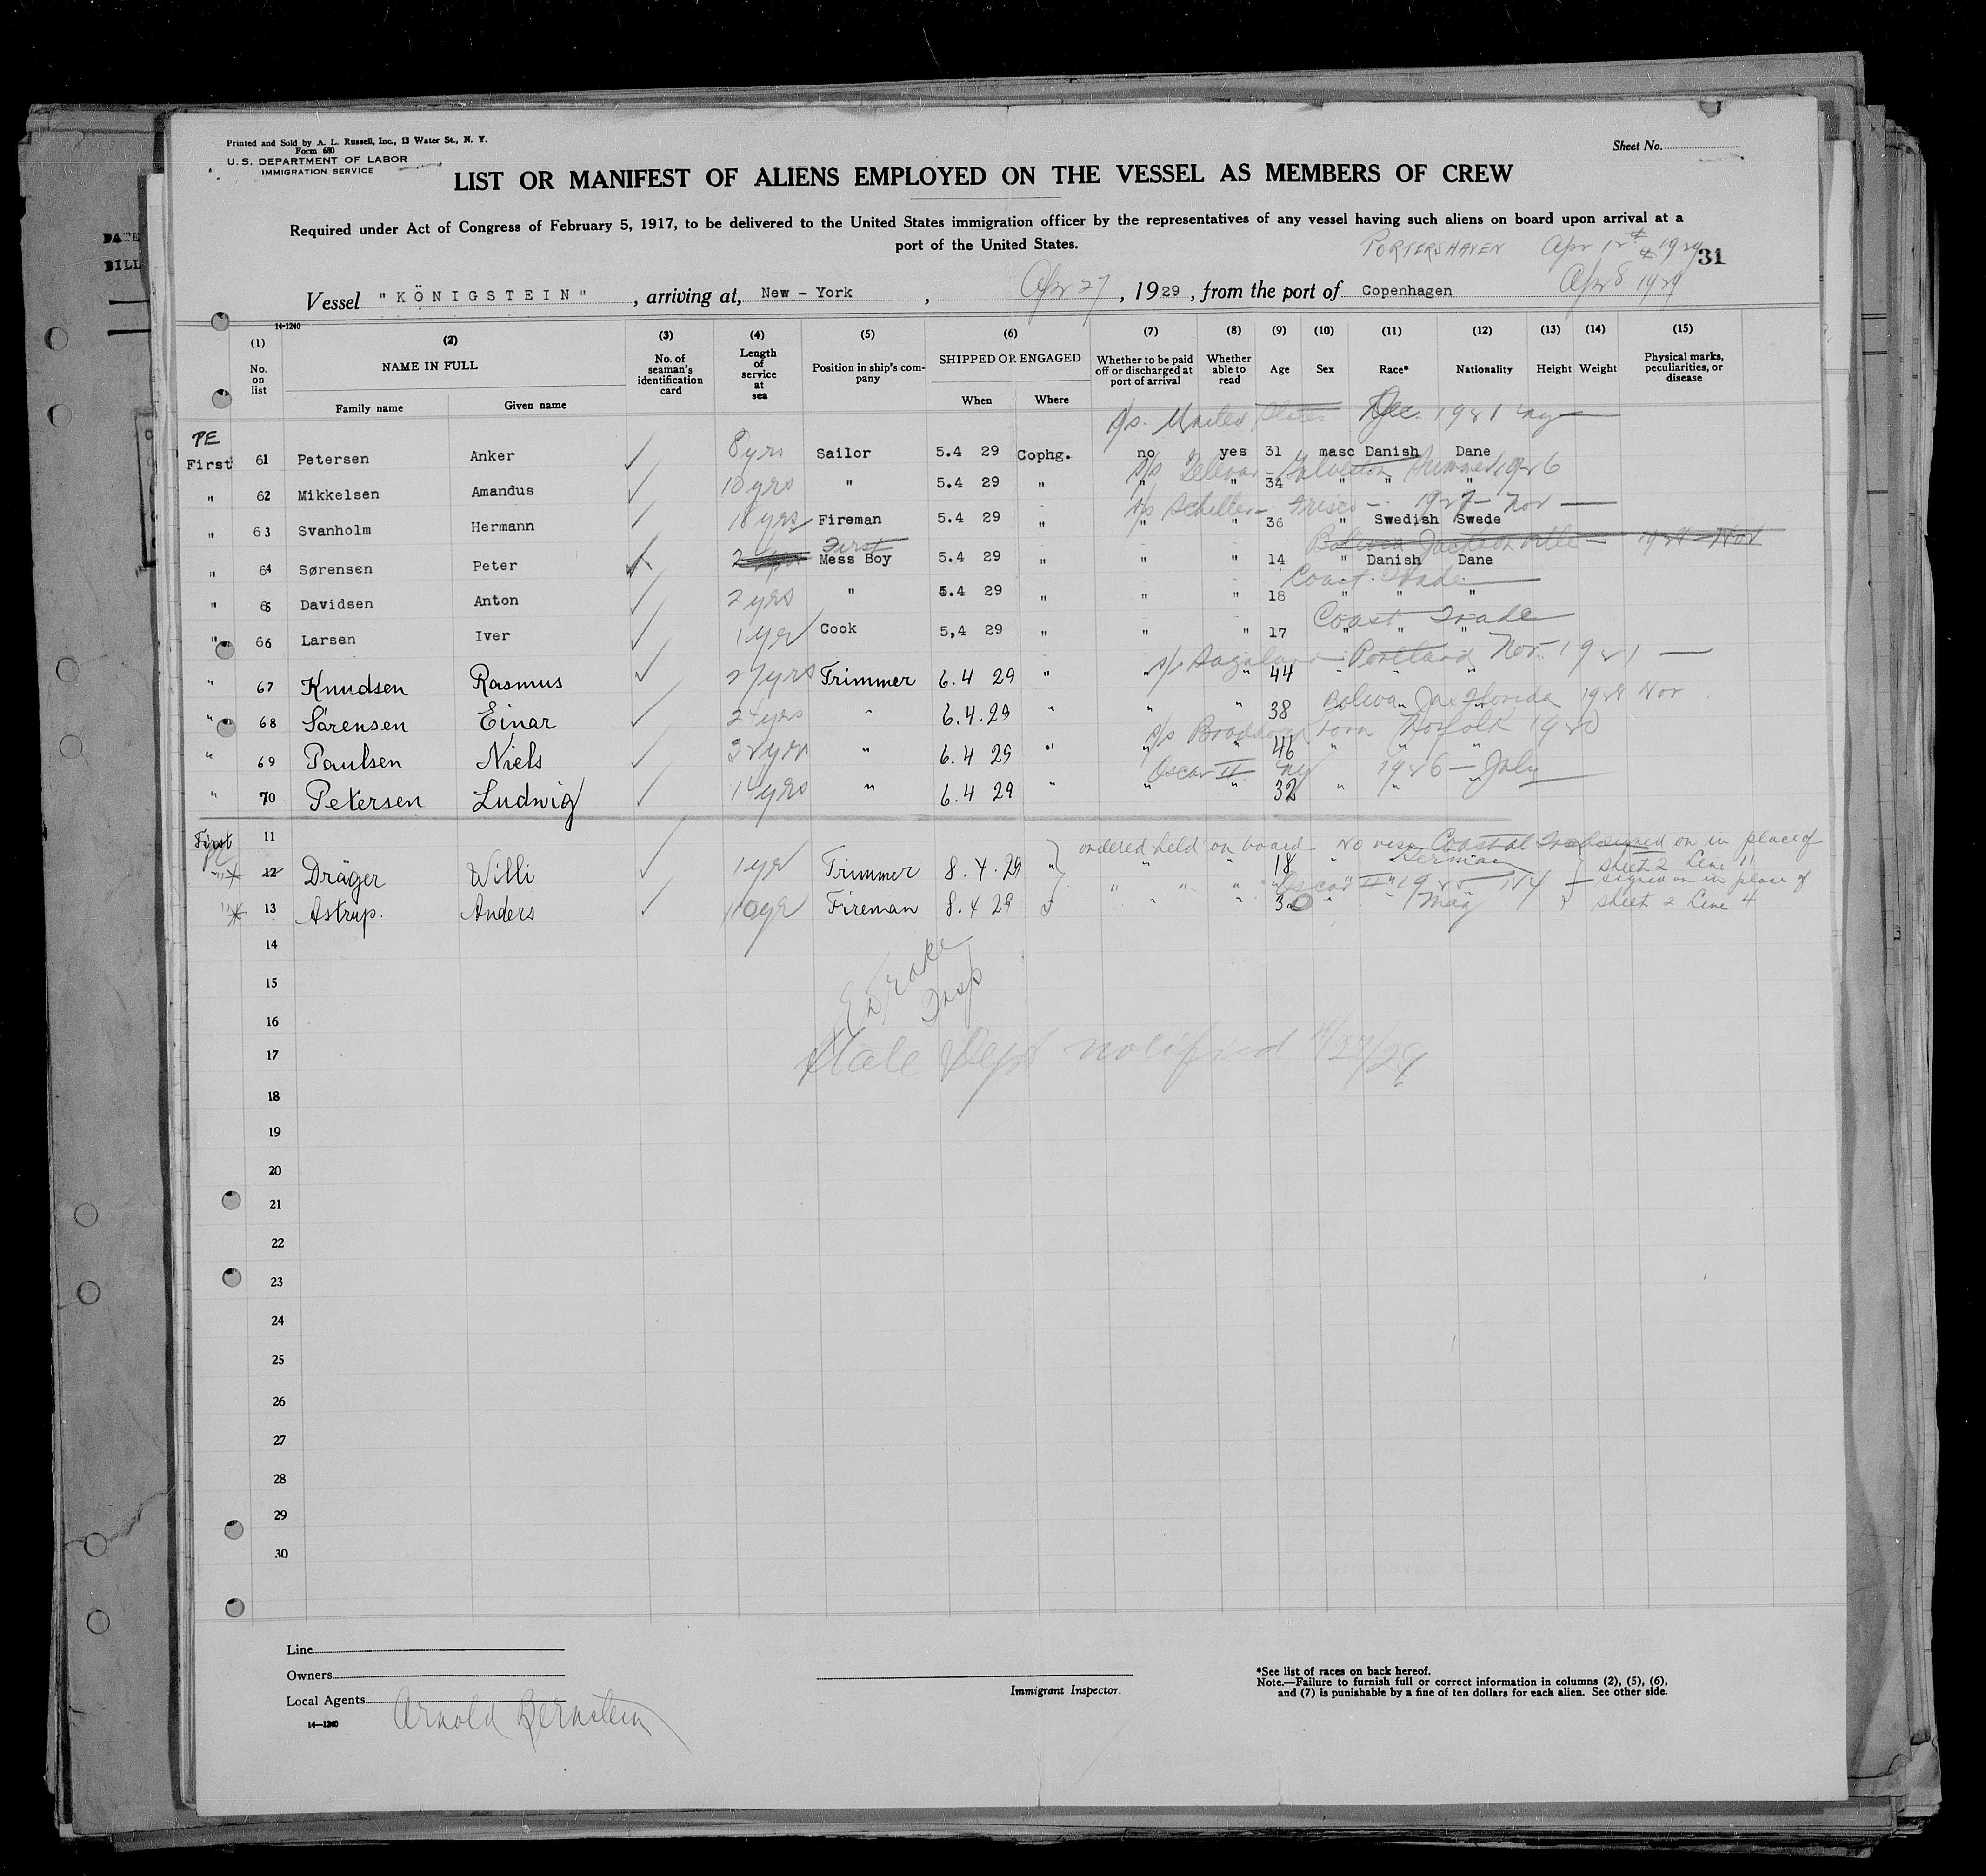 Printed and Sold by A. L. Russell, Inc., 13 Water St., N. Y.
Form 680
U. S. DEPARTMENT OF LABOR
IMMIGRATION SERVICE
Sheet No.
LIST OR MANIFEST OF ALIENS EMPLOYED ON THE VESSEL AS MEMBERS OF CREW
Required under Act of Congress of February 5, 1917, to be delivered to the United States immigration officer by the representatives of any vessel having such aliens on board upon arrival at a
port of the United States.
PORTERSHAVEN Apr 12th 1929
31
Vessel "KÖNIGSTEIN", arriving at, New - York, Apr 27, 1929, from the port of Copenhagen Apr 8 1929
14-1240
(1) (2) (3) (4) (5) (6) (7) (8) (9) (10) (11) (12) (13) (14) (15)
No. on list
NAME IN FULL
Family name Given name
No. of seaman's identification card
Length of service at sea
Position in ship's company
SHIPPED OR ENGAGED
When Where
Whether to be paid off or discharged at port of arrival
Whether able to read
Age
Sex
Race*
Nationality
Height
Weight
Physical marks, peculiarities, or disease
S/s. United States Dec. 1921 ny
PE
First 61 Petersen Anker 8 yrs Sailor 5.4 29 Cophg. no yes 31 masc Danish Dane
Galveston Summer 1926
" 62 Mikkelsen Amandus 10 yrs " 5.4 29 " " " 34 " " "
S/s Schiller - Frisco - 1927 - Nov
" 63 Svanholm Hermann 18 yrs Fireman 5.4 29 " " " 36 " Swedish Swede
First Bolivia Jacksonville - Nov
" 64 Sørensen Peter Mess Boy 5.4 29 " " " 14 " Danish Dane
Coast Trade
" 65 Davidsen Anton 2 yrs " 5.4 29 " " " 18 " " "
Coast Trade
" 66 Larsen Iver 1 yr Cook 5,4 29 " " " 17 " " "
S/s Portland Nov. 1921
" 67 Knudsen Rasmus 27 yrs Trimmer 6.4 29 " " " 44 " " "
Boliva Jax Florida 1928 Nov
" 68 Sørensen Einar 24 yrs " 6.4.29 " " " 38 " " "
S/s Norfolk 1920
" 69 Paulsen Niels 32 yrs " 6.4 29 " " " 46 " " "
Oscar II ny 1926 - July
" 70 Petersen Ludwig 14 yrs " 6.4 29 " " " 32 " " "
First 11 ordered held on board - No visa Coastal Trade signed on in place of
sheet 2 Line 11
" 12 Dräger Willi 1 yr Trimmer 8.4.29 " " " 18 " German
"Oscar II" NY signed on in place of
" 13 Astrup. Anders 10 yr Fireman 8.4 29 " " " 30 " " May sheet 2 Line 4
14
15
E Drake
Insp
16
17
State Dept notified 4/27/29
18
19
20
21
22
23
24
25
26
27
28
29
30
Line
Owners
Local Agents Arnold Bernstein
14-1240
Immigrant Inspector.
*See list of races on back hereof.
Note.—Failure to furnish full or correct information in columns (2), (5), (6),
and (7) is punishable by a fine of ten dollars for each alien. See other side.
DATE
BILL